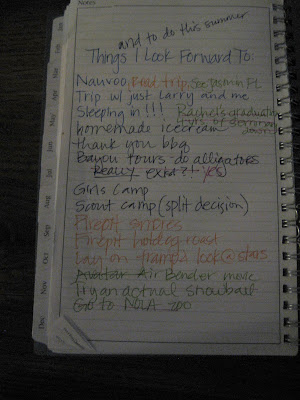 Notes
and to do this summer
Things I Look Forward To:
Nauvoo, Road trip, See Jason in FL
Trip w/ just Larry and me
Sleeping in!!! Rachel's graduation
homemade icecream
thank you bbq
Bayou tours do alligators
Really exist?! yes)
Girls Camp
Scout camp (split decision)
Firepit smores
Firepit hotdog roast
Lay on tramp & look @ stars
Avatar Air Bender movie
Try an actual snowball
Go to NOLA zoo
Jun
Jul
Aug
Sep
Oct
Nov
Dec